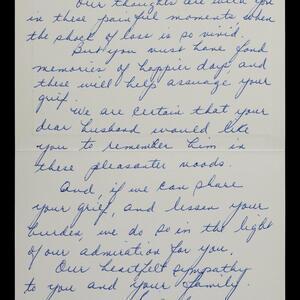 Our thoughts are with you
in these painful moments when
the shock of loss is so vivid.
But you must have fond
memories of happier days, and
these will help assuage your
grief.
We are certain that your
dear husband would like
you to remember him in
these pleasanter moods.
And, if we can share
your grief, and lessen your
burden, we do so in the light
of our admiration for you.
Our heartfelt sympathy
to you and your family.